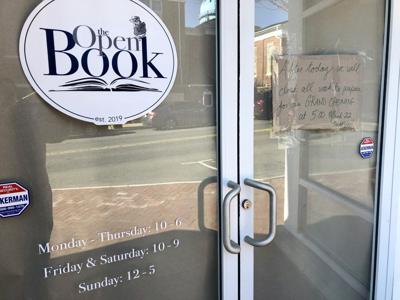 the
Open
Book
est. 2019
After today we will
close all week to prepare
for our GRAND OPENING
at 5:00 March 22
KERMAN
Monday - Thursday: 10 - 6
Friday & Saturday: 10 - 9
Sunday: 12 - 5